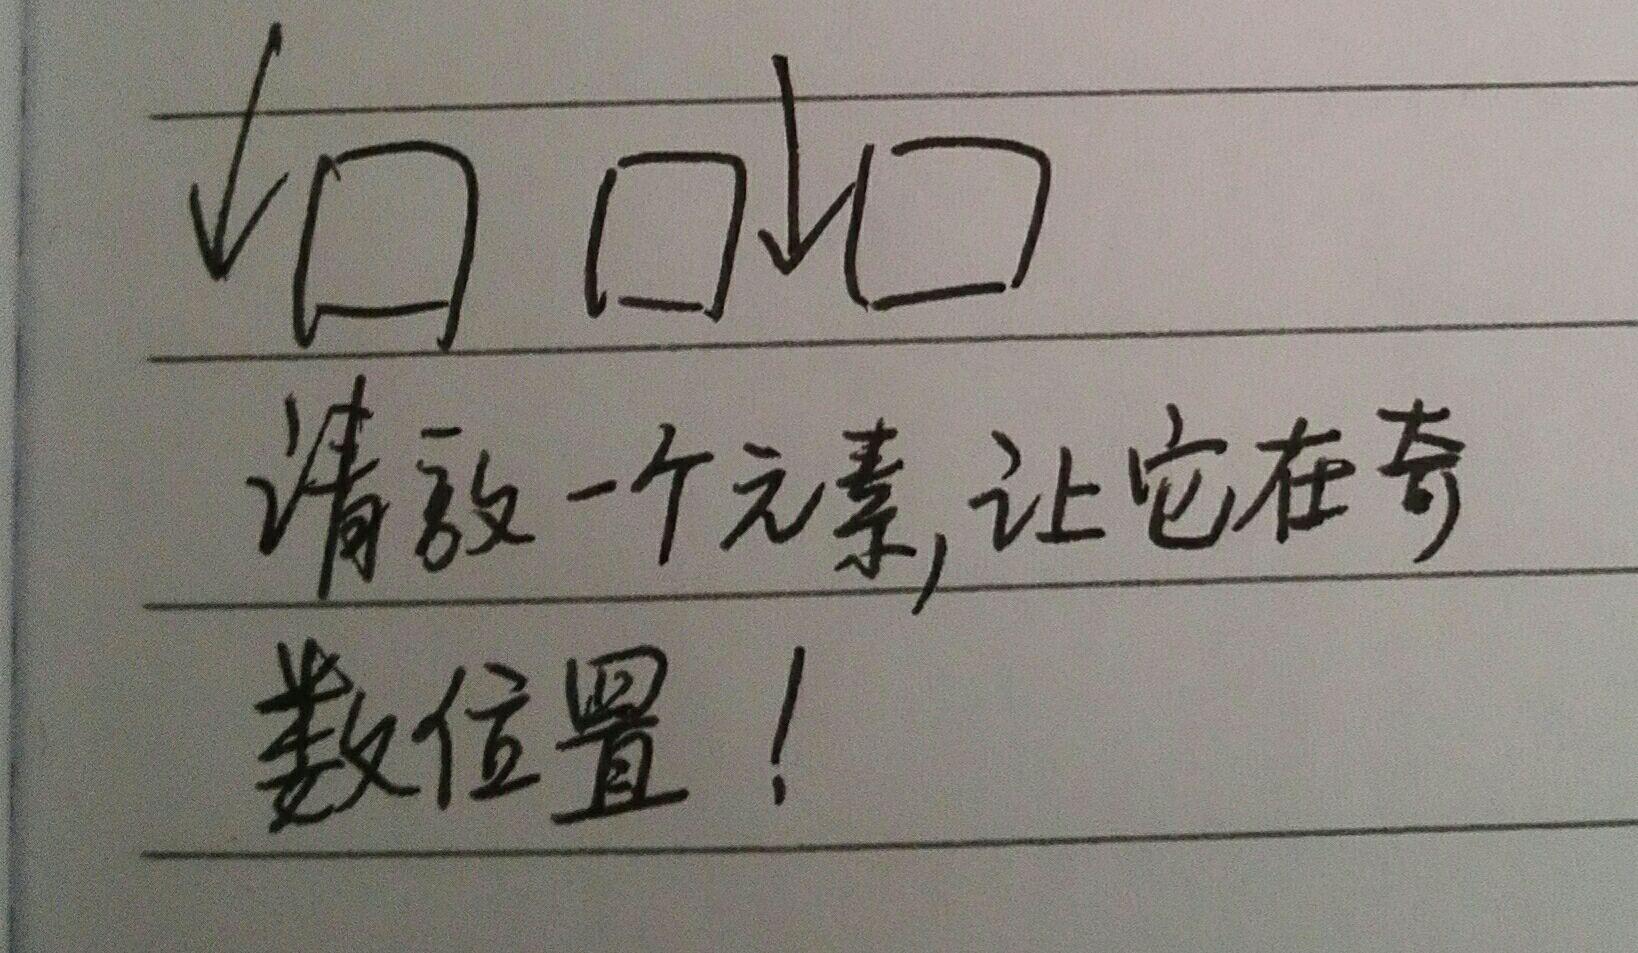 请放一个元素,让它在奇
数位置!